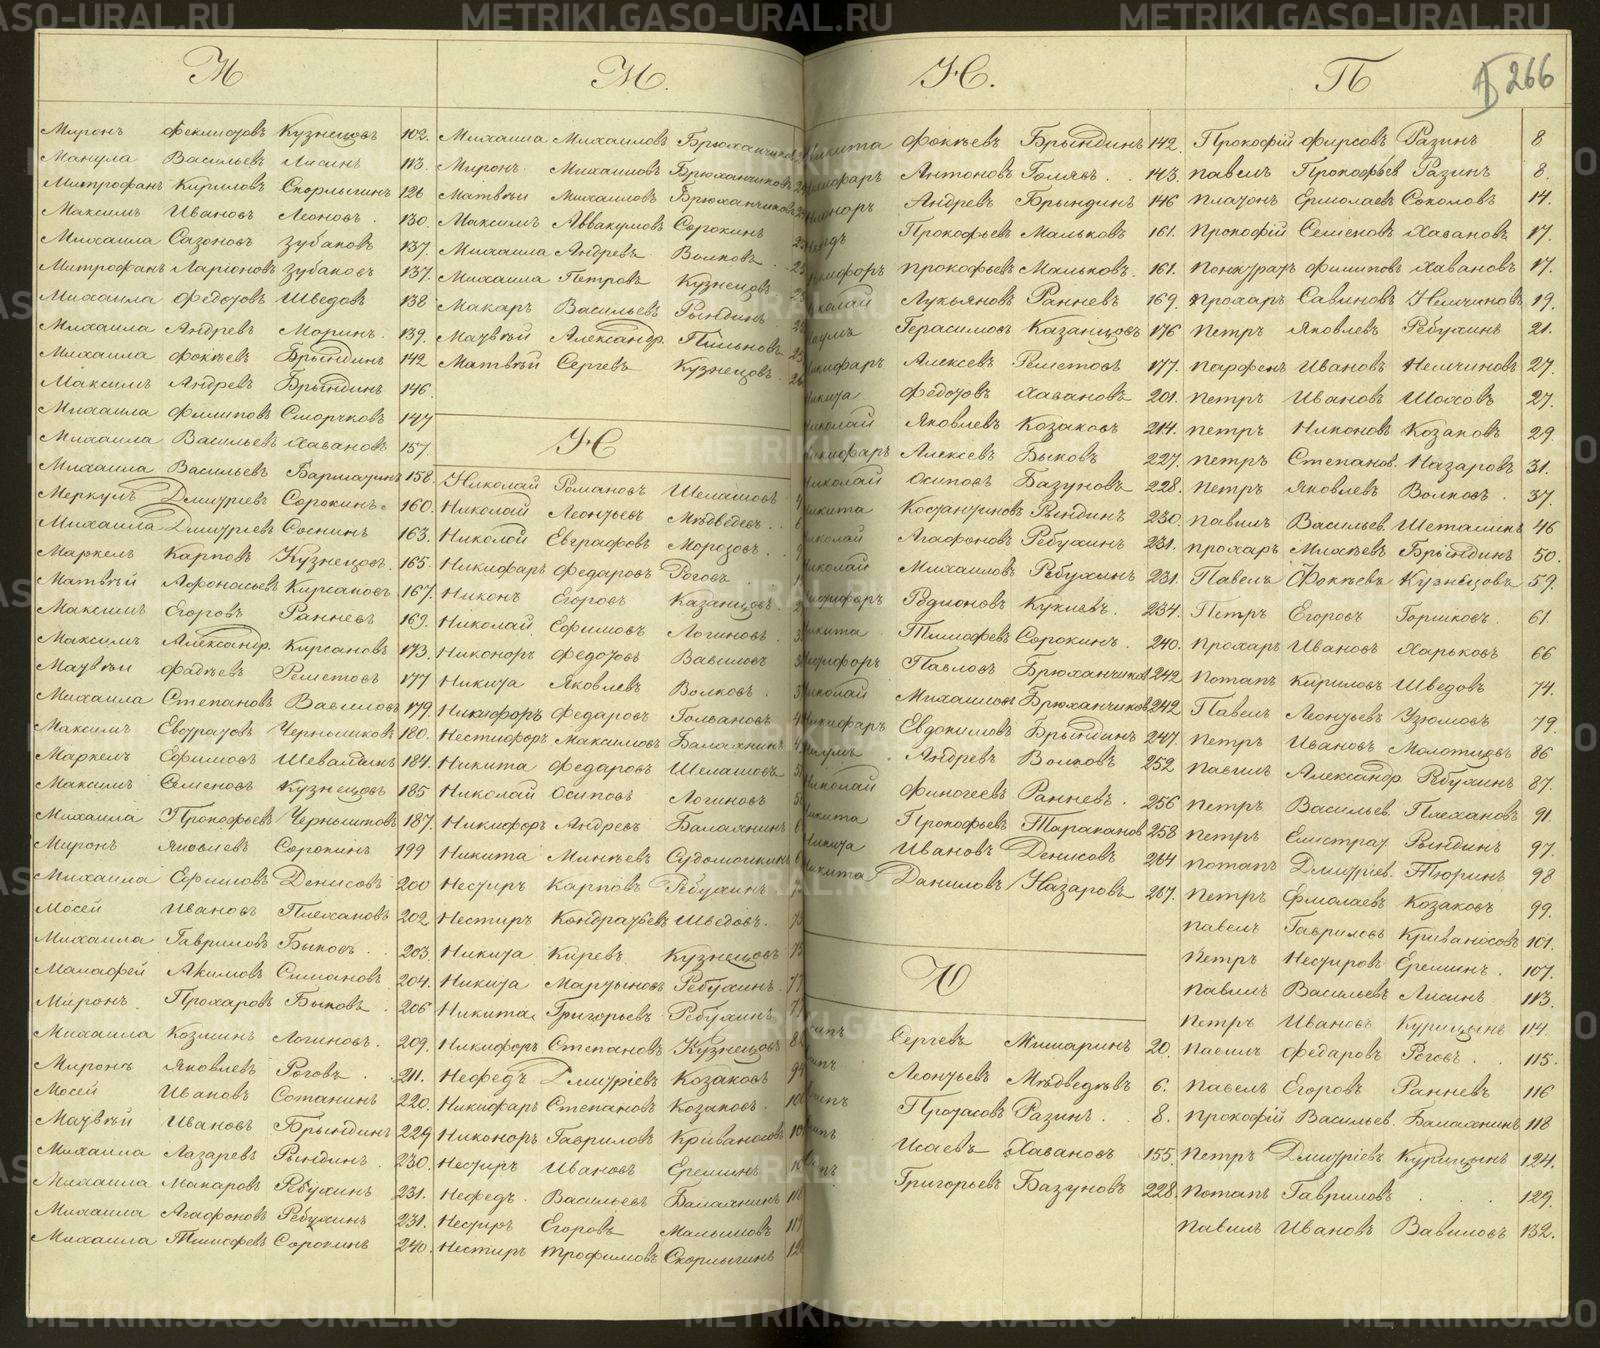 METRIKI.GASO-URAL.RU
М
Миронъ Феклистовъ Кузнецовъ 102.
Манула Васильевъ Лисинъ 113.
Митрофанъ Кириловъ Скорлыгинъ 126
Максимъ Ивановъ Леоновъ. 130.
Михаила Сазоновъ Зубаковъ 137.
Митрофанъ Ларіоновъ Зубаковъ 137.
Михаила Федотовъ Шведовъ 138
Михаила Андревъ Моринъ. 139.
Михаила Фокѣевъ Брындинъ 142
Максимъ Андревъ Брындинъ 146.
Михаила Филиповъ Сморчковъ 147
Михаила Васильевъ Хавановъ 157.
Михаила Васильевъ Бармотинъ 158.
Меркулъ Дмитріевъ Сорокинъ. 160.
Михаила Дмитріевъ Соснинъ 163.
Маркелъ Карповъ Кузнецовъ. 165.
Матвѣй Афонасьевъ Кирсановъ 167.
Максимъ Егоровъ Ранневъ 169.
Максимъ Александр. Кирсановъ 173.
Матвѣи Фадѣевъ Решетовъ 177
Михаила Степановъ Вавиловъ 179.
Максимъ Евстратовъ Чернышковъ 180.
Маркелъ Ефимовъ Шевалдинъ 184.
Максимъ Семеновъ Кузнецовъ 185
Михаила Прокофьевъ Чернышковъ 187.
Миронъ Яковлевъ Сорокинъ 199
Михаила Ефимовъ Денисовъ 200
Мосей Ивановъ Плехановъ 202
Михаила Гавриловъ Быковъ. 203.
Малафей Акимовъ Симановъ 204.
Миронъ Прохаровъ Быковъ. 206
Михаила Козминъ Логиновъ. 209.
Миронъ Яковлевъ Роговъ. 211.
Мосей Ивановъ Сотанинъ 220.
Матвѣй Ивановъ Брындинъ 229
Михаила Лазаревъ Рындинъ. 230.
Михаила Макаровъ Рѣбухинъ 231.
Михаила Агафоновъ Рѣбухинъ 231.
Михаила Тимофевъ Сорокинъ 240.
М.
Михаила Михаиловъ Брюханчиковъ
Миронъ Михаиловъ Брюханчиковъ
Матвѣи Михаиловъ Брюханчиковъ
Максимъ Аввакумовъ Сорокинъ
Михаила Андревъ Волковъ.
Михаила Петровъ Кузнецовъ
Макаръ Васильевъ Рындинъ
Матвѣй Александр. Пильновъ
Матвѣй Сергевъ Кузнецовъ.
Н
Николай Романовъ Шелашовъ
Николай Леонтьевъ Мѣдведевъ.
Николай Евграфовъ Морозовъ.
Никифаръ Федаровъ Роговъ
Никонъ Егоровъ Казанцовъ
Николай Ефимовъ Логиновъ.
Никоноръ Федотовъ Вавиловъ
Никита Яковлевъ Волковъ.
Никифоръ Федаровъ Гольановъ
Нестифоръ Максимовъ Балахнинъ
Никита Федаровъ Шелашовъ
Николай Осиповъ Логиновъ
Никифоръ Андревъ Балахнинъ
Никита Минѣевъ Судомойкинъ
Нестиръ Карповъ Рѣбухинъ
Нестиръ Кондратьевъ Шведовъ.
Никита Киревъ Кузнецовъ 75
Никита Мартыновъ Рѣбухинъ. 77
Никита Григорьевъ Рѣбухинъ 77
Никифоръ Степановъ Кузнецовъ
Нефедъ Дмитріевъ Козаковъ
Никифаръ Степановъ Козаковъ.
Никоноръ Гавриловъ Кривоносовъ
Нестиръ Ивановъ Ереминъ
Нефедъ. Васильевъ Балахнинъ
Нестиръ Егоровъ Малышовъ
Нестиръ Трофимовъ Скорлыгинъ
Н.
Фокѣевъ Брындинъ 142.
Антоновъ Голявъ. 143.
Андревъ Брындинъ 146
Прокофьевъ Мальковъ 161.
Прокофьевъ Мальковъ. 161.
Лукьяновъ Ранневъ 169.
Герасимовъ Казанцовъ 176
Алексевъ Решетовъ 177.
Федотовъ Хавановъ 201.
Яковлевъ Козаковъ 214.
Алексевъ Быковъ 227.
Осиповъ Базуновъ 228.
Костантиновъ Рындинъ 230.
Агафоновъ Рѣбухинъ 231.
Михаиловъ Рѣбухинъ 231.
Родионовъ Куклевъ. 234.
Тимофевъ Сорокинъ. 240.
Павловъ Брюханчиковъ 242
Михаиловъ Брюханчиковъ 242
Евдокимовъ Брындинъ 247.
Андревъ Волковъ 252
Финогеевъ Ранневъ. 256
Прокофьевъ Таракановъ 258
Ивановъ Денисовъ 264
Даниловъ Назаровъ 267.
О
Сергевъ Мишаринъ 20.
Леонтьевъ Мѣдведѣвъ 6.
Протасовъ Разинъ. 8.
Исаевъ Хавановъ 155.
Григорьевъ Базуновъ 228.
П
266
Прокофій Фирсовъ Разинъ 8
Павелъ Прокофьев Разинъ 8.
Платонъ Ермолаевъ Соколовъ 14.
Прокофій Семеновъ Хавановъ 17.
Понкратъ Филиповъ Хавановъ 17.
Прохаръ Савиновъ Немчиновъ 19.
Петръ Яковлевъ Рѣбухинъ 21.
Парфенъ Ивановъ Немчиновъ 27.
Петръ Ивановъ Шоховъ 27.
Петръ Никоновъ Козаковъ 29.
Петръ Степанов. Назаровъ 31.
Петръ Яковлевъ Волковъ. 37.
Павилъ Васильев. Шеталинъ 46
Прохаръ Михѣевъ Брындинъ 50.
Павелъ Фокѣевъ Кузньцовъ 59.
Петръ Егоровъ Горшковъ. 61.
Прохаръ Ивановъ Харьковъ 66
Потапъ Кириловъ Шведовъ 74.
Павелъ Леонтьевъ Узюмовъ 79.
Петръ Ивановъ Молотиловъ 86
Павилъ Александр. Рѣбухинъ 87.
Петръ Васильев. Плехановъ 91.
Петръ Елистрат. Рындинъ 97.
Потапъ Дмитріев. Тюринъ 98
Петръ Ермолаевъ Козаковъ 99.
Павелъ Гавриловъ Кривоносовъ 101.
Петръ Нестировъ Еремин. 107.
Павилъ Васильевъ Лисинъ 113.
Петръ Ивановъ Курицынъ 114.
Павилъ Федаровъ Роговъ. 115.
Павелъ Егоровъ Ранневъ 116
Прокофій Васильев. Балахнинъ 118
Петръ Дмитріевъ Курицынъ 124.
Потапъ Гавриловъ 129.
Павилъ Ивановъ Вавиловъ 132.
METRIKI.GASO-URAL.RU